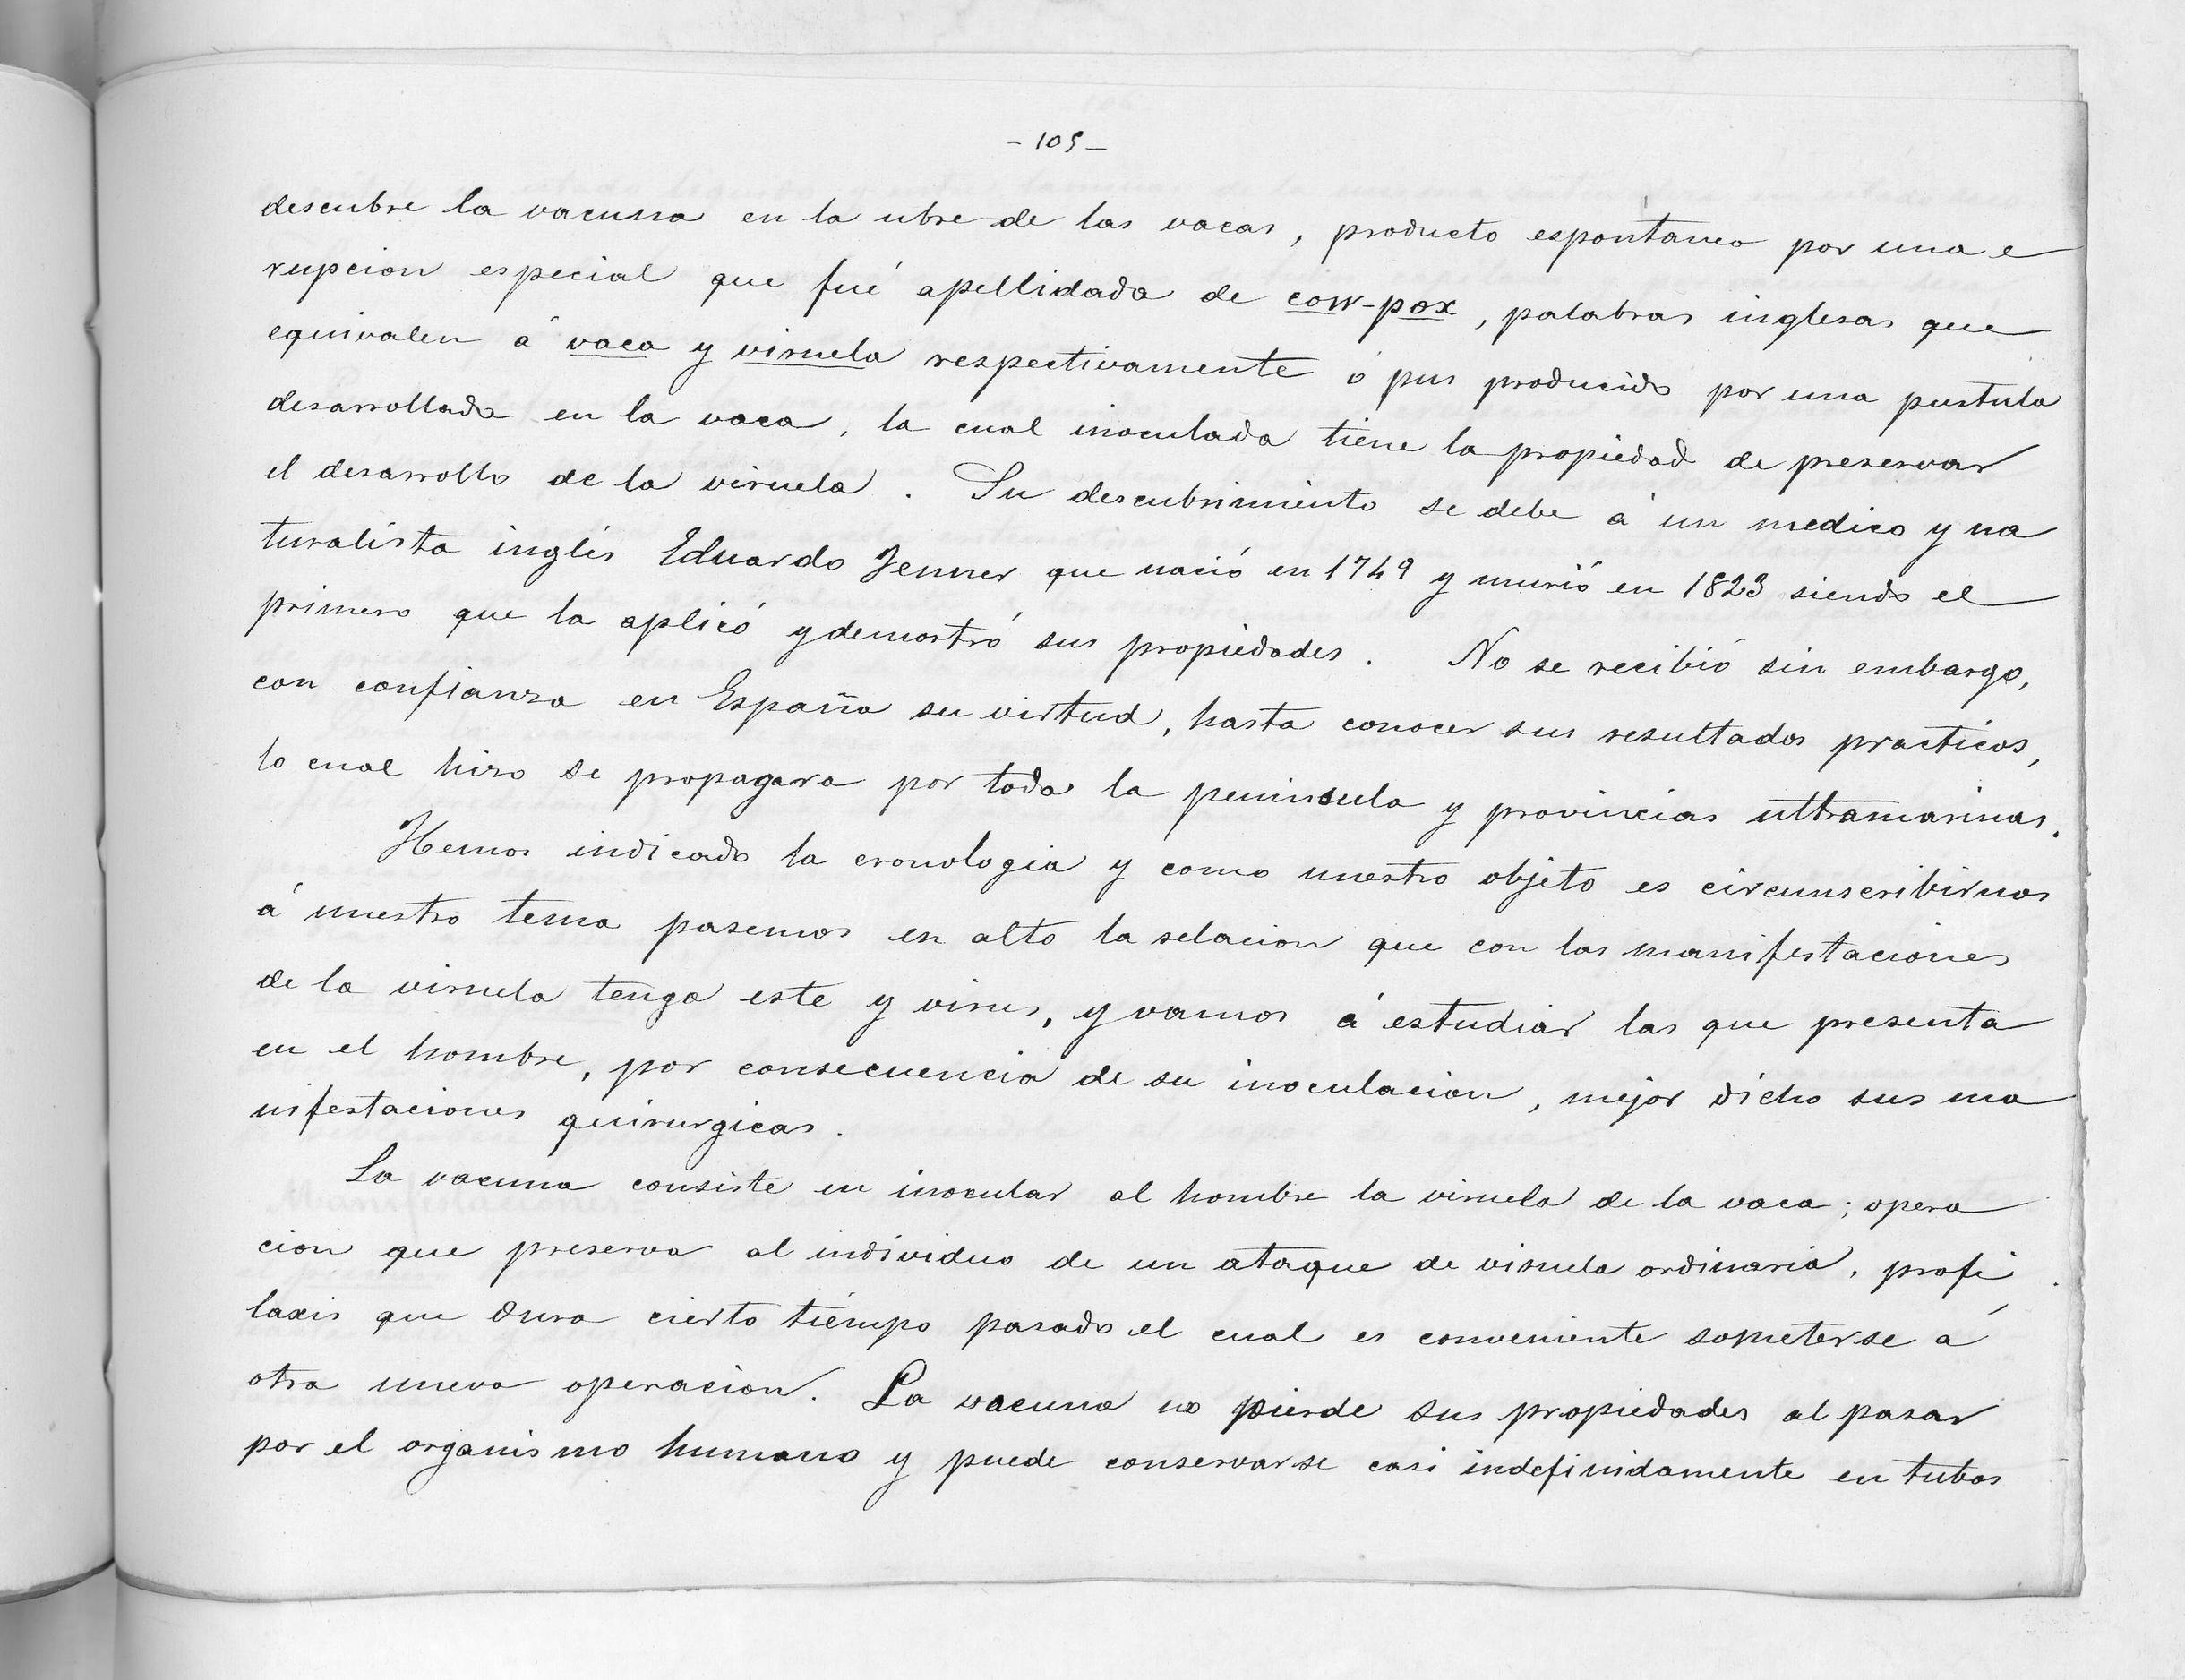 - 105 -
descubre la vacuna en la ubre de las vacas, producto espontaneo por una e
rupcion especial que fué apellidada de cow-pox, palabras inglesas que
equivalen á vaca y viruela respectivamente ó pus producido por una pustula
desarrollada en la vaca, la cual inoculada tiene la propiedad de preservar
el desarrollo de la viruela. Su descubrimiento se debe á un medico y na
turalista inglés Eduardo Jenner que nació en 1749 y murió en 1823 siendo el
primero que la aplicó y demostró sus propiedades. No se recibió sin embargo,
con confianza en España su virtud, hasta conocer sus resultados practicos,
lo cual hizo se propagara por toda la peninsula y provincias ultramarinas.
Hemos indicado la cronologia y como nuestro objeto es circunscribirnos
á nuestro tema pasemos en alto la relacion que con las manifestaciones
de la viruela tenga este y virus, y vamos á estudiar las que presenta
en el hombre, por consecuencia de su inoculacion, mejor dicho sus ma
nifestaciones quirurgicas.
La vacuna consiste en inocular al hombre la viruela de la vaca; opera
cion que preserva al individuo de un ataque de viruela ordinaria, profi
laxis que dura cierto tiempo pasado el cual es conveniente someterse á
otra nueva operacion. La vacuna no pierde sus propiedades al pasar
por el organismo humano y puede conservarse casi indefinidamente en tubos